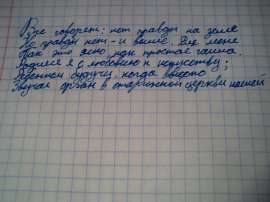 Все говорят: нет правды на земле
Но правды нет - и выше. Для меня
Так это ясно, как простая гамма.
Родился я с любовию к искусству;
Ребенком будучи, когда высоко
Звучал орган в старинной церкви нашей